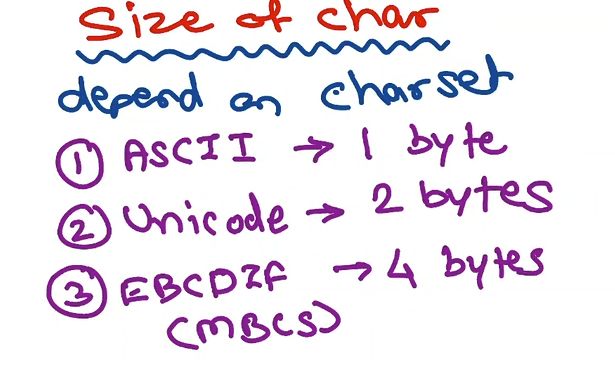 Size of char
depend on charset
① ASCII → 1 byte
② Unicode → 2 bytes
③ EBCDIF → 4 bytes
(MBCS)